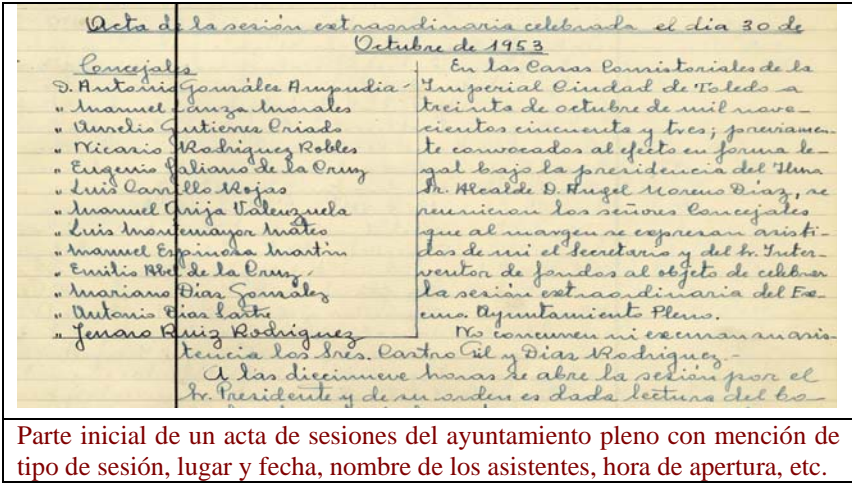 Acta de la sesión extraordinaria celebrada el dia 30 de
Octubre de 1953
Concejales
D. Antonio González Ampudia
" Manuel Lanza Morales
" Aurelio Gutierrez Criado
" Nicasio Rodriguez Robles
" Eugenio Galiano de la Cruz
" Luis Carrillo Rojas
" Manuel Arija Valenzuela
" Luis Montemayor Mateo
" Manuel Espinosa Martin
" Emilio Abel de la Cruz
" Mariano Díaz González
" Antonio Dias
" Jenaro Ruiz Rodriguez
En las Casas Consistoriales de la
Imperial Ciudad de Toledo a
treinta de octubre de mil nove-
cientos cincuenta y tres; previamen-
te convocados al efecto en forma le-
gal bajo la presidencia del Iltmo
Sr. Alcalde D. Angel Moreno Diaz, se
reunieron los señores Concejales
que al margen se expresan asisti-
dos de mi el Secretario y del Sr. Inter-
ventor de fondos al objeto de celebrar
la sesión extraordinaria del Exc-
cmo. Ayuntamiento Pleno.
No concurren ni excusan su asis-
tencia los Sres. Castro Gil y Dias Rodriguez.-
A las diecinueve horas se abre la sesión por el
Sr. Presidente y de su orden es dada lectura del bo-
Parte inicial de un acta de sesiones del ayuntamiento pleno con mención de
tipo de sesión, lugar y fecha, nombre de los asistentes, hora de apertura, etc.